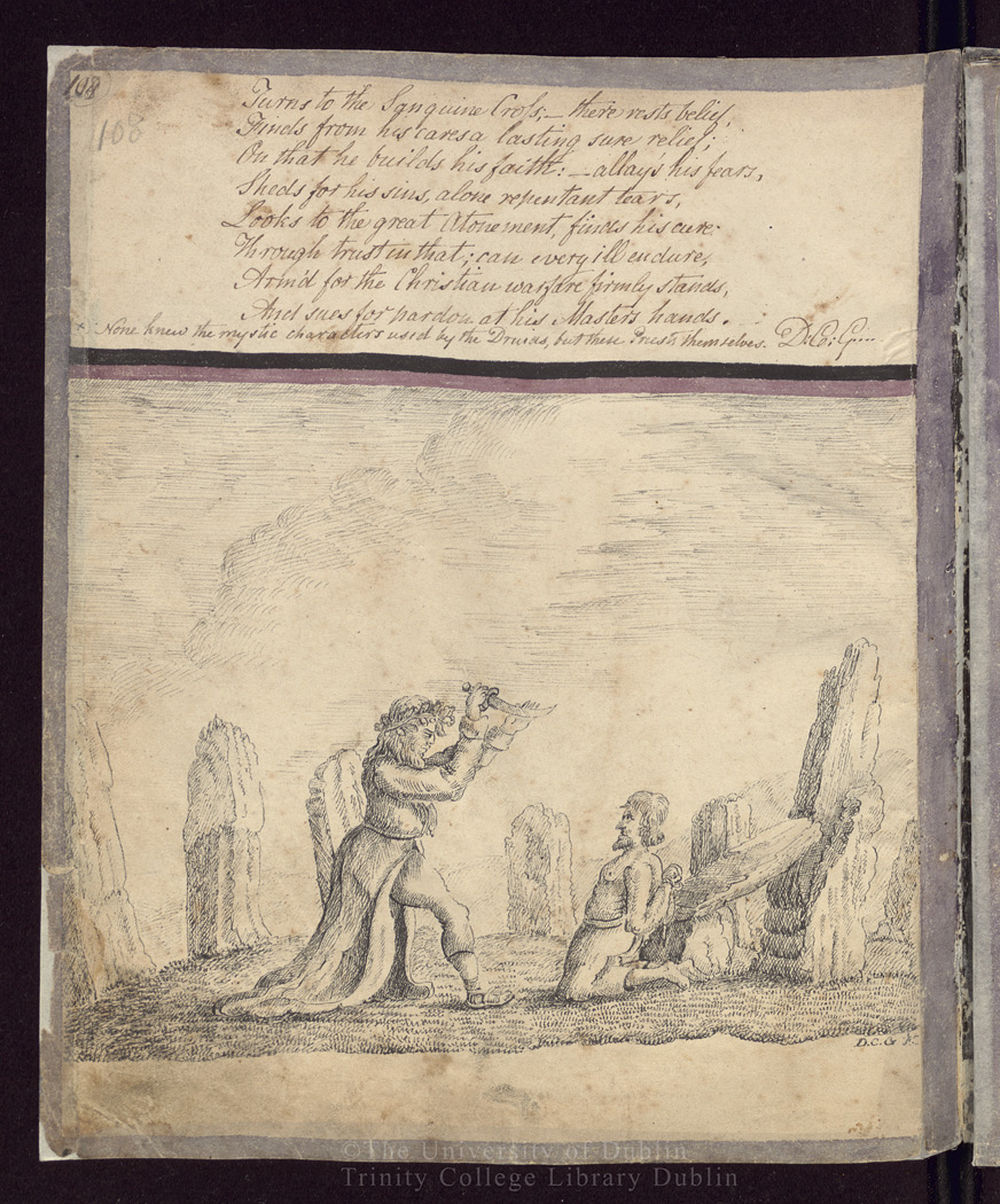 108
108
Turns to the Sanguine Cross; — there rests belief,
Finds from his cares a lasting sure relief;
On that he builds his faith: — allay's his fears,
Sheds for his sins, alone repentant tears,
Looks to the great Atonement, finds his cure
Through trust in that; can every ill endure,
Arm'd for the Christian warfare firmly stands,
And sues for pardon at his Masters hands.
None knew the mystic characters used by the Druids, but these Priests themselves. D: Co: G
D. C. G
©The University of Dublin
Trinity College Library Dublin